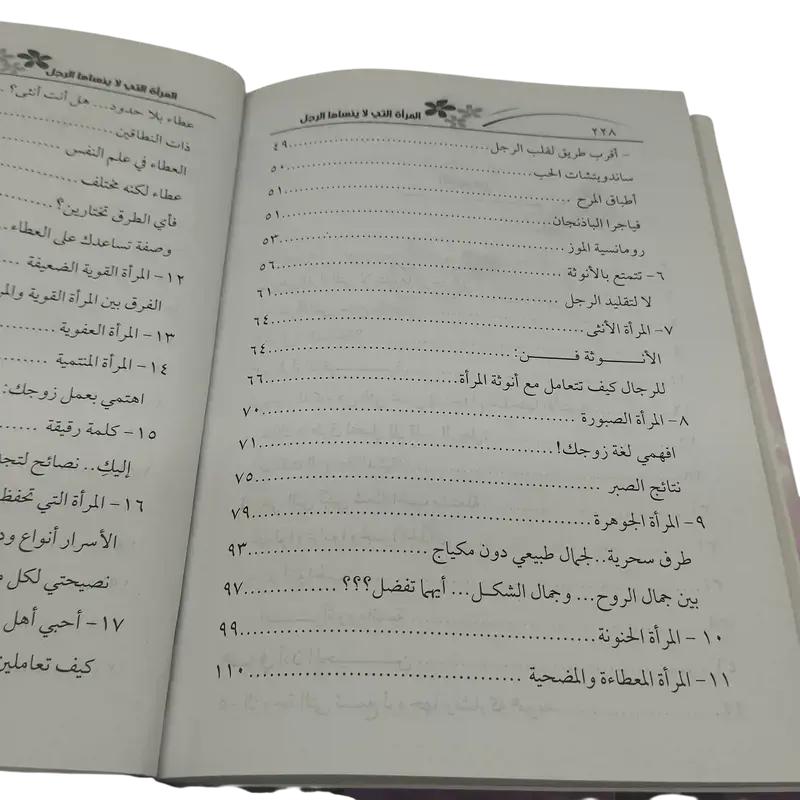 ٢٢٨
المرأة التي لا ينساها الرجل
- أقرب طريق لقلب الرجل ................ ٤٩
ساندويتشات الحب ................ ٥٠
أطباق المرح ................ ٥١
فياجرا الباذنجان ................ ٥١
رومانسية الموز ................ ٥٣
٦- تتمتع بالأنوثة ................ ٥٦
لا لتقليد الرجل ................ ٦١
٧- المرأة الأنثى ................ ٦٤
الأنـــوثة فـــن: ................ ٦٤
للرجال كيف تتعامل مع أنوثة المرأة ................ ٦٦
٨- المرأة الصبورة ................ ٧٠
افهمي لغة زوجك! ................ ٧١
نتائج الصبر ................ ٧٥
٩- المرأة الجوهرة ................ ٧٩
طرق سحرية..لجمال طبيعي دون مكياج ................ ٩٣
بين جمال الروح... وجمال الشكـل... أيهما تفضل؟؟؟ ................ ٩٧
١٠- المرأة الحنونة ................ ٩٩
١١- المرأة المعطاءة والمضحية ................ ١١٠
المرأة التي لا ينساها الرجل
عطاء بلا حدود... هل أنت أنثى؟
ذات النطاقين
العطاء في علم النفس
عطاء لكنه مختلف
فأي الطرق تختارين؟
وصفة تساعدك على العطاء
١٢- المرأة القوية الضعيفة
الفرق بين المرأة القوية
١٣- المرأة العفوية
١٤- المرأة المنتمية
اهتمي بعمل زوجك:
١٥- كلمة رقيقة
إليكِ.. نصائح
١٦- المرأة التي تحفظ
الأسرار أنواع
نصيحتي لكل
١٧- أحبي أهل
كيف تعاملين